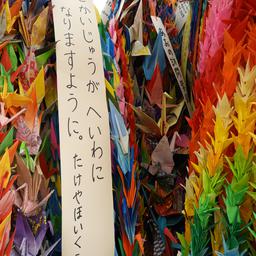 かいじゅうが へいわに
なりますように。 たけやほいく